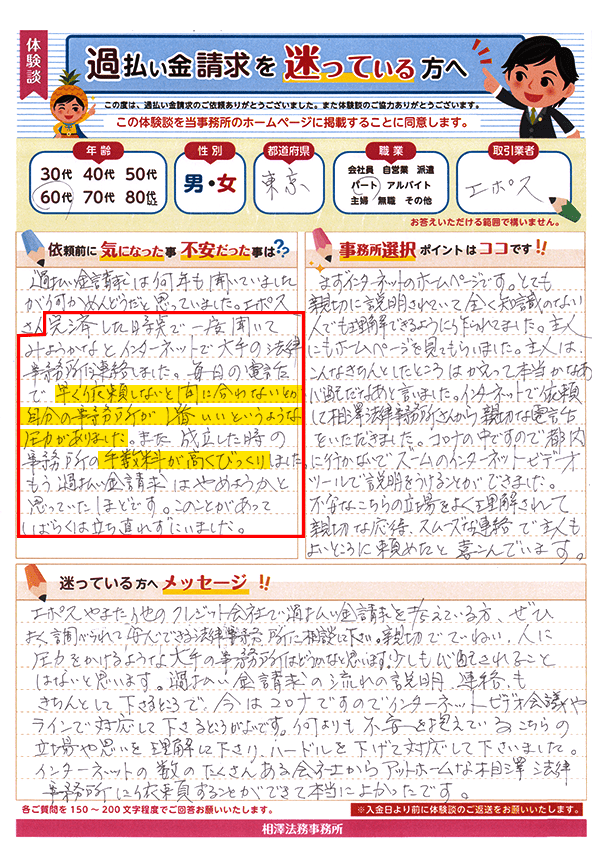 体験談
過払い金請求を迷っている方へ
この度は、過払い金請求のご依頼ありがとうございました。また体験談のご協力ありがとうございます。
この体験談を当事務所のホームページに掲載することに同意します。
年齢
30代 40代 50代
60代 70代 80代以上
性別
男・女
都道府県
東京
職業
会社員 自営業 派遣
パート アルバイト
主婦 無職 その他
取引業者
エポス
お答えいただける範囲で構いません。
依頼前に気になった事 不安だった事は??
過払い金請求は何年も聞いていました
が何かめんどうだと思っていました。エポス
さん完済した時点で一度聞いて
みようかなとインターネットで大手の法律
事務所に連絡しました。毎日の電話
で早く依頼しないと間に合わないとか
自分の事務所が1番いいというような
圧力がありました。また成立した時の
事務所の手数料が高くびっくりしました。
もう過払い金請求はやめようかと
思っていたほどです。このことがあって
しばらくは立ち直れずにいました。
事務所選択ポイントはココです!!
まずインターネットのホームページです。とても
親切に説明されていて全く知識のない
人でも理解できるように作られてました。主人
にもホームページを見てもらいました。主人は、
こんなきちんとしたところはかえって本当かなあ
心配だなあと言いました。インターネットで依頼
して相澤法律事務所さんから親切な電話
をいただきました。コロナの中ですので都内
に行かないでズームのインターネットビデオ
ツールで説明をうけることができました。
不安なこちらの立場をよく理解されて
親切な応待、スムーズな連絡で主人も
よいところに頼めたと喜こんでいます。
迷っている方へメッセージ!!
エポスやまた他のクレジット会社で過払い金請求を考えている方、ぜひ
よく調べられて安心できる法律事務所に相談して下さい。親切でていねい、人に
圧力をかけるような大手の事務所はどうかなと思います。少しも心配されること
はないと思います。過払い金請求の流れの説明、連絡も
きちんとして下さるところで、今はコロナですのでインターネットビデオ会議や
ラインで対応して下さるところがよいです。何よりも不安を抱えているこちらの
立場や思いを理解して下さり、ハードルを下げて対応して下さいました。
インターネットの数のたくさんある会社からアットホームな相澤法律
事務所に依頼することができて本当によかったです。
各ご質問を150〜200文字程度でご回答お願いいたします。
※入金日より前に体験談のご返送をお願いいたします。
相澤法務事務所